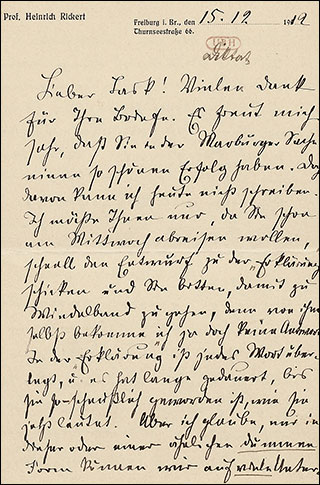 Prof. Heinrich Rickert
Freiburg i. Br., den 15. 12 1912
Thurnseestraße 66.
UBH
Lieber Lask! Vielen Dank
für Ihre Briefe. Es freut mich
sehr, daß Sie in der Marburger Sache
einen so schönen Erfolg haben.
davon kann ich heute nicht schreiben.
Ich möchte Ihnen nur, da Sie schon
am Mittwoch abreisen wollen,
schnell den Entwurf zu der "Erklärung"
schicken und Sie bitten, damit zu
Windelband zu gehen, denn von ihm
selbst bekomme ich ja doch keine Antwort.
In der "Erklärung" ist jedes Wort über-
legt, u. es hat lange gedauert, bis
sie so scheußlich geworden ist, wie sie
jetzt lautet. Aber ich glaube, nur in
dieser oder einer ähnlichen dummen
Form können wir auf viele Unter-